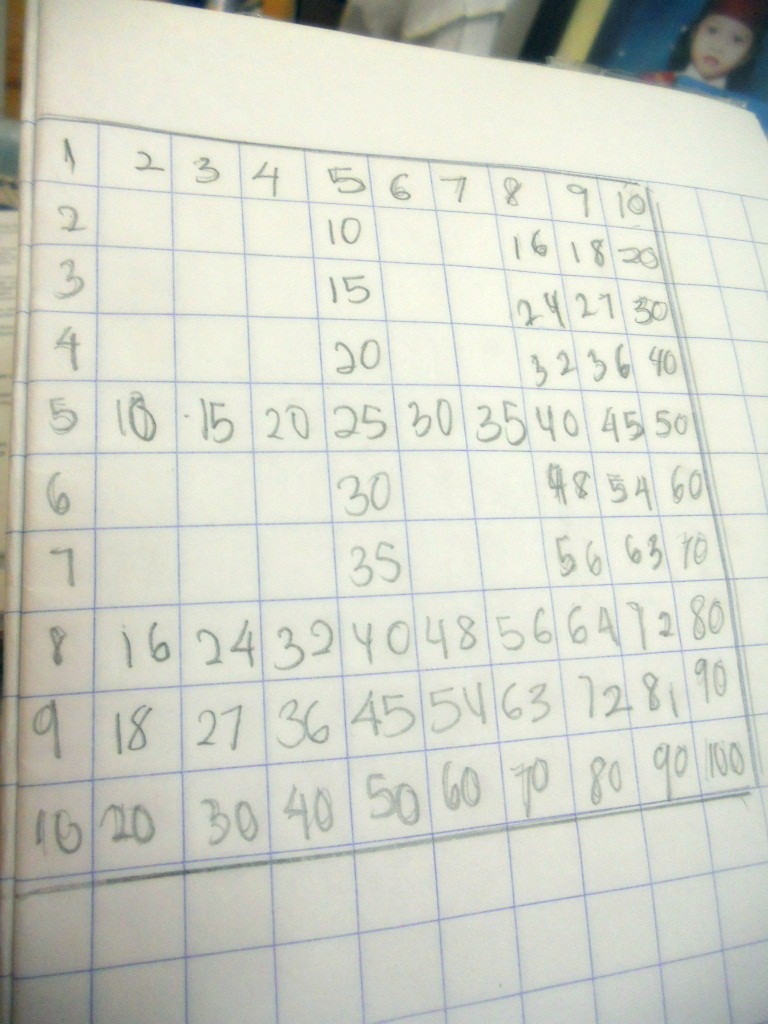 1 2 3 4 5 6 7 8 9 10
2 10 16 18 20
3 15 24 27 30
4 20 32 36 40
5 10 15 20 25 30 35 40 45 50
6 30 48 54 60
7 35 56 63 70
8 16 24 32 40 48 56 64 72 80
9 18 27 36 45 54 63 72 81 90
10 20 30 40 50 60 70 80 90 100